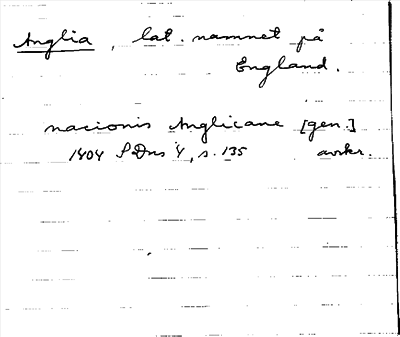 Anglia, lat. namnet på
England.
nacionis Anglicane [gen.]
1404 SDns 4, s. 135 avskr.